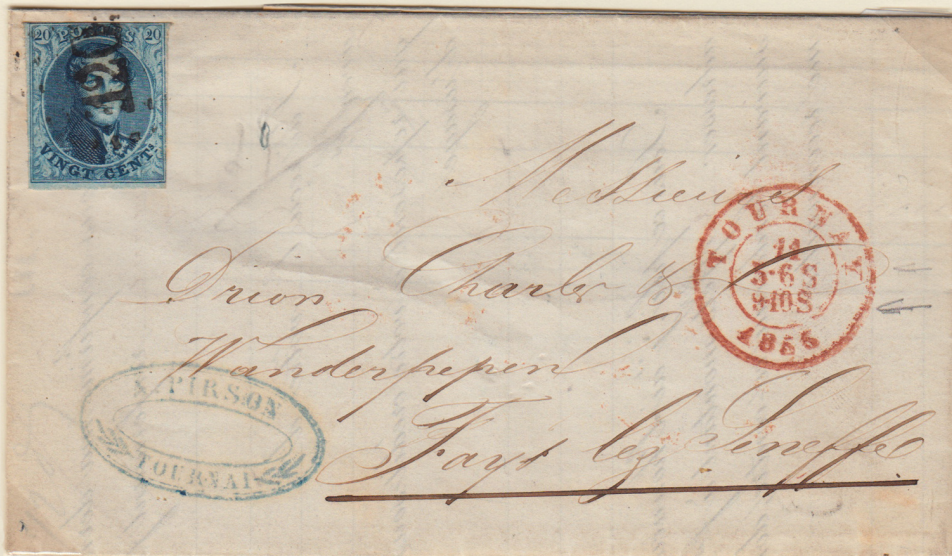 20 20
120
VINGT CENTS.
Messieurs
Drion Charles &
Wanderpepen
Fayt lez Sineffe
TOURNAY
5-6S
9-10S
PIRSON
TOURNAI